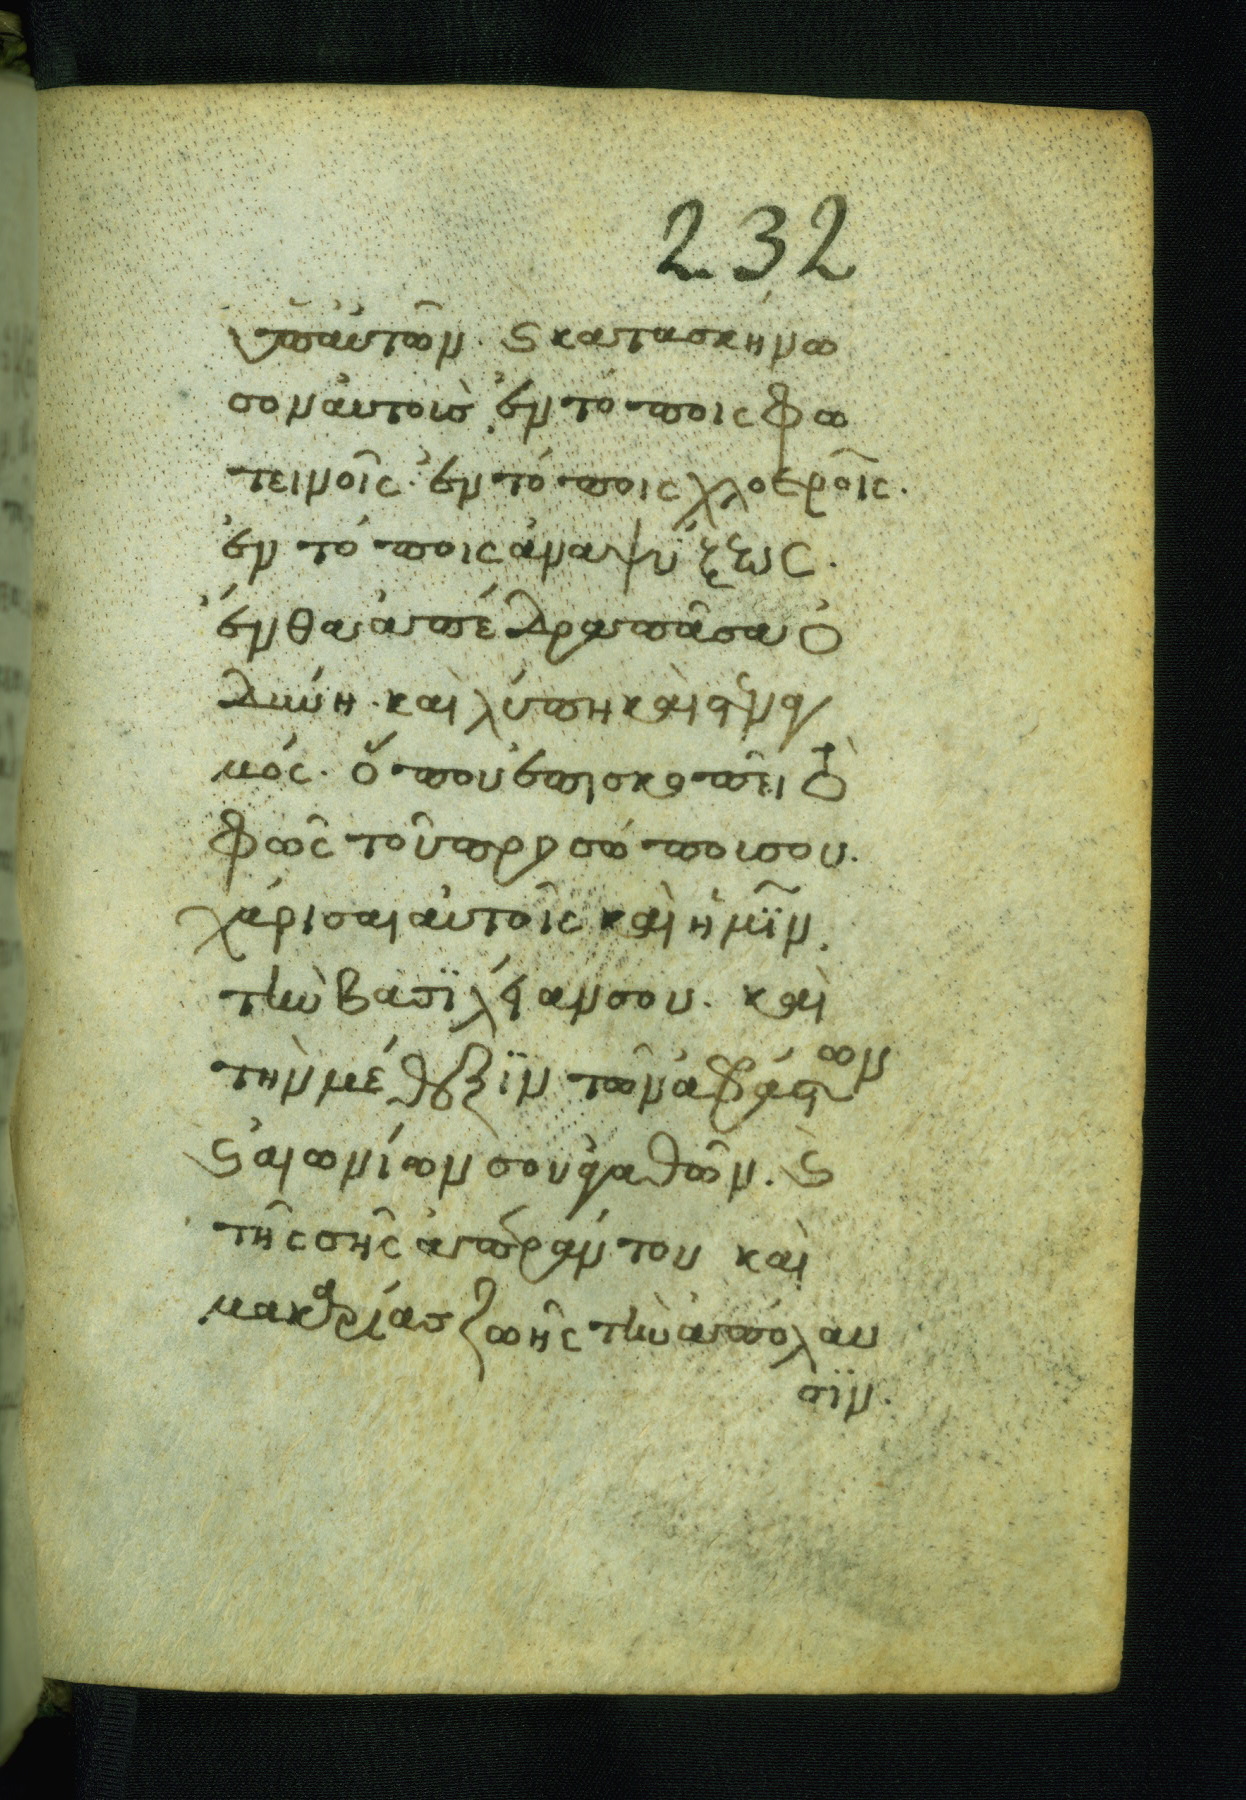 232
ὑπ' αὐτῶν. ϛ κατασκήνω
σον αὐτοὺς ἐν τόποις φω
τεινοῖς. ἐν τόποις χλοεροῖς.
ἐν τόποις ἀναψύξεως.
ἔνθα ἀπέδρα πᾶσα ὀ
δύνη. καὶ λύπη καὶ στεναγ
μός. ὅπου ἐπισκοπεῖ τὸ
φῶς τοῦ προσώπου σου.
χάρισαι αὐτοῖς καὶ ἡμῖν.
τὴν βασιλείαν σου. καὶ
τὴν μέθεξιν τῶν ἀφράστων
ϛ αἰωνίων σου ἀγαθῶν. ϛ
τῆς σῆς ἀπεράντου καὶ
μακαρίας ζωῆς τὴν ἀπόλαυ
σϊν.